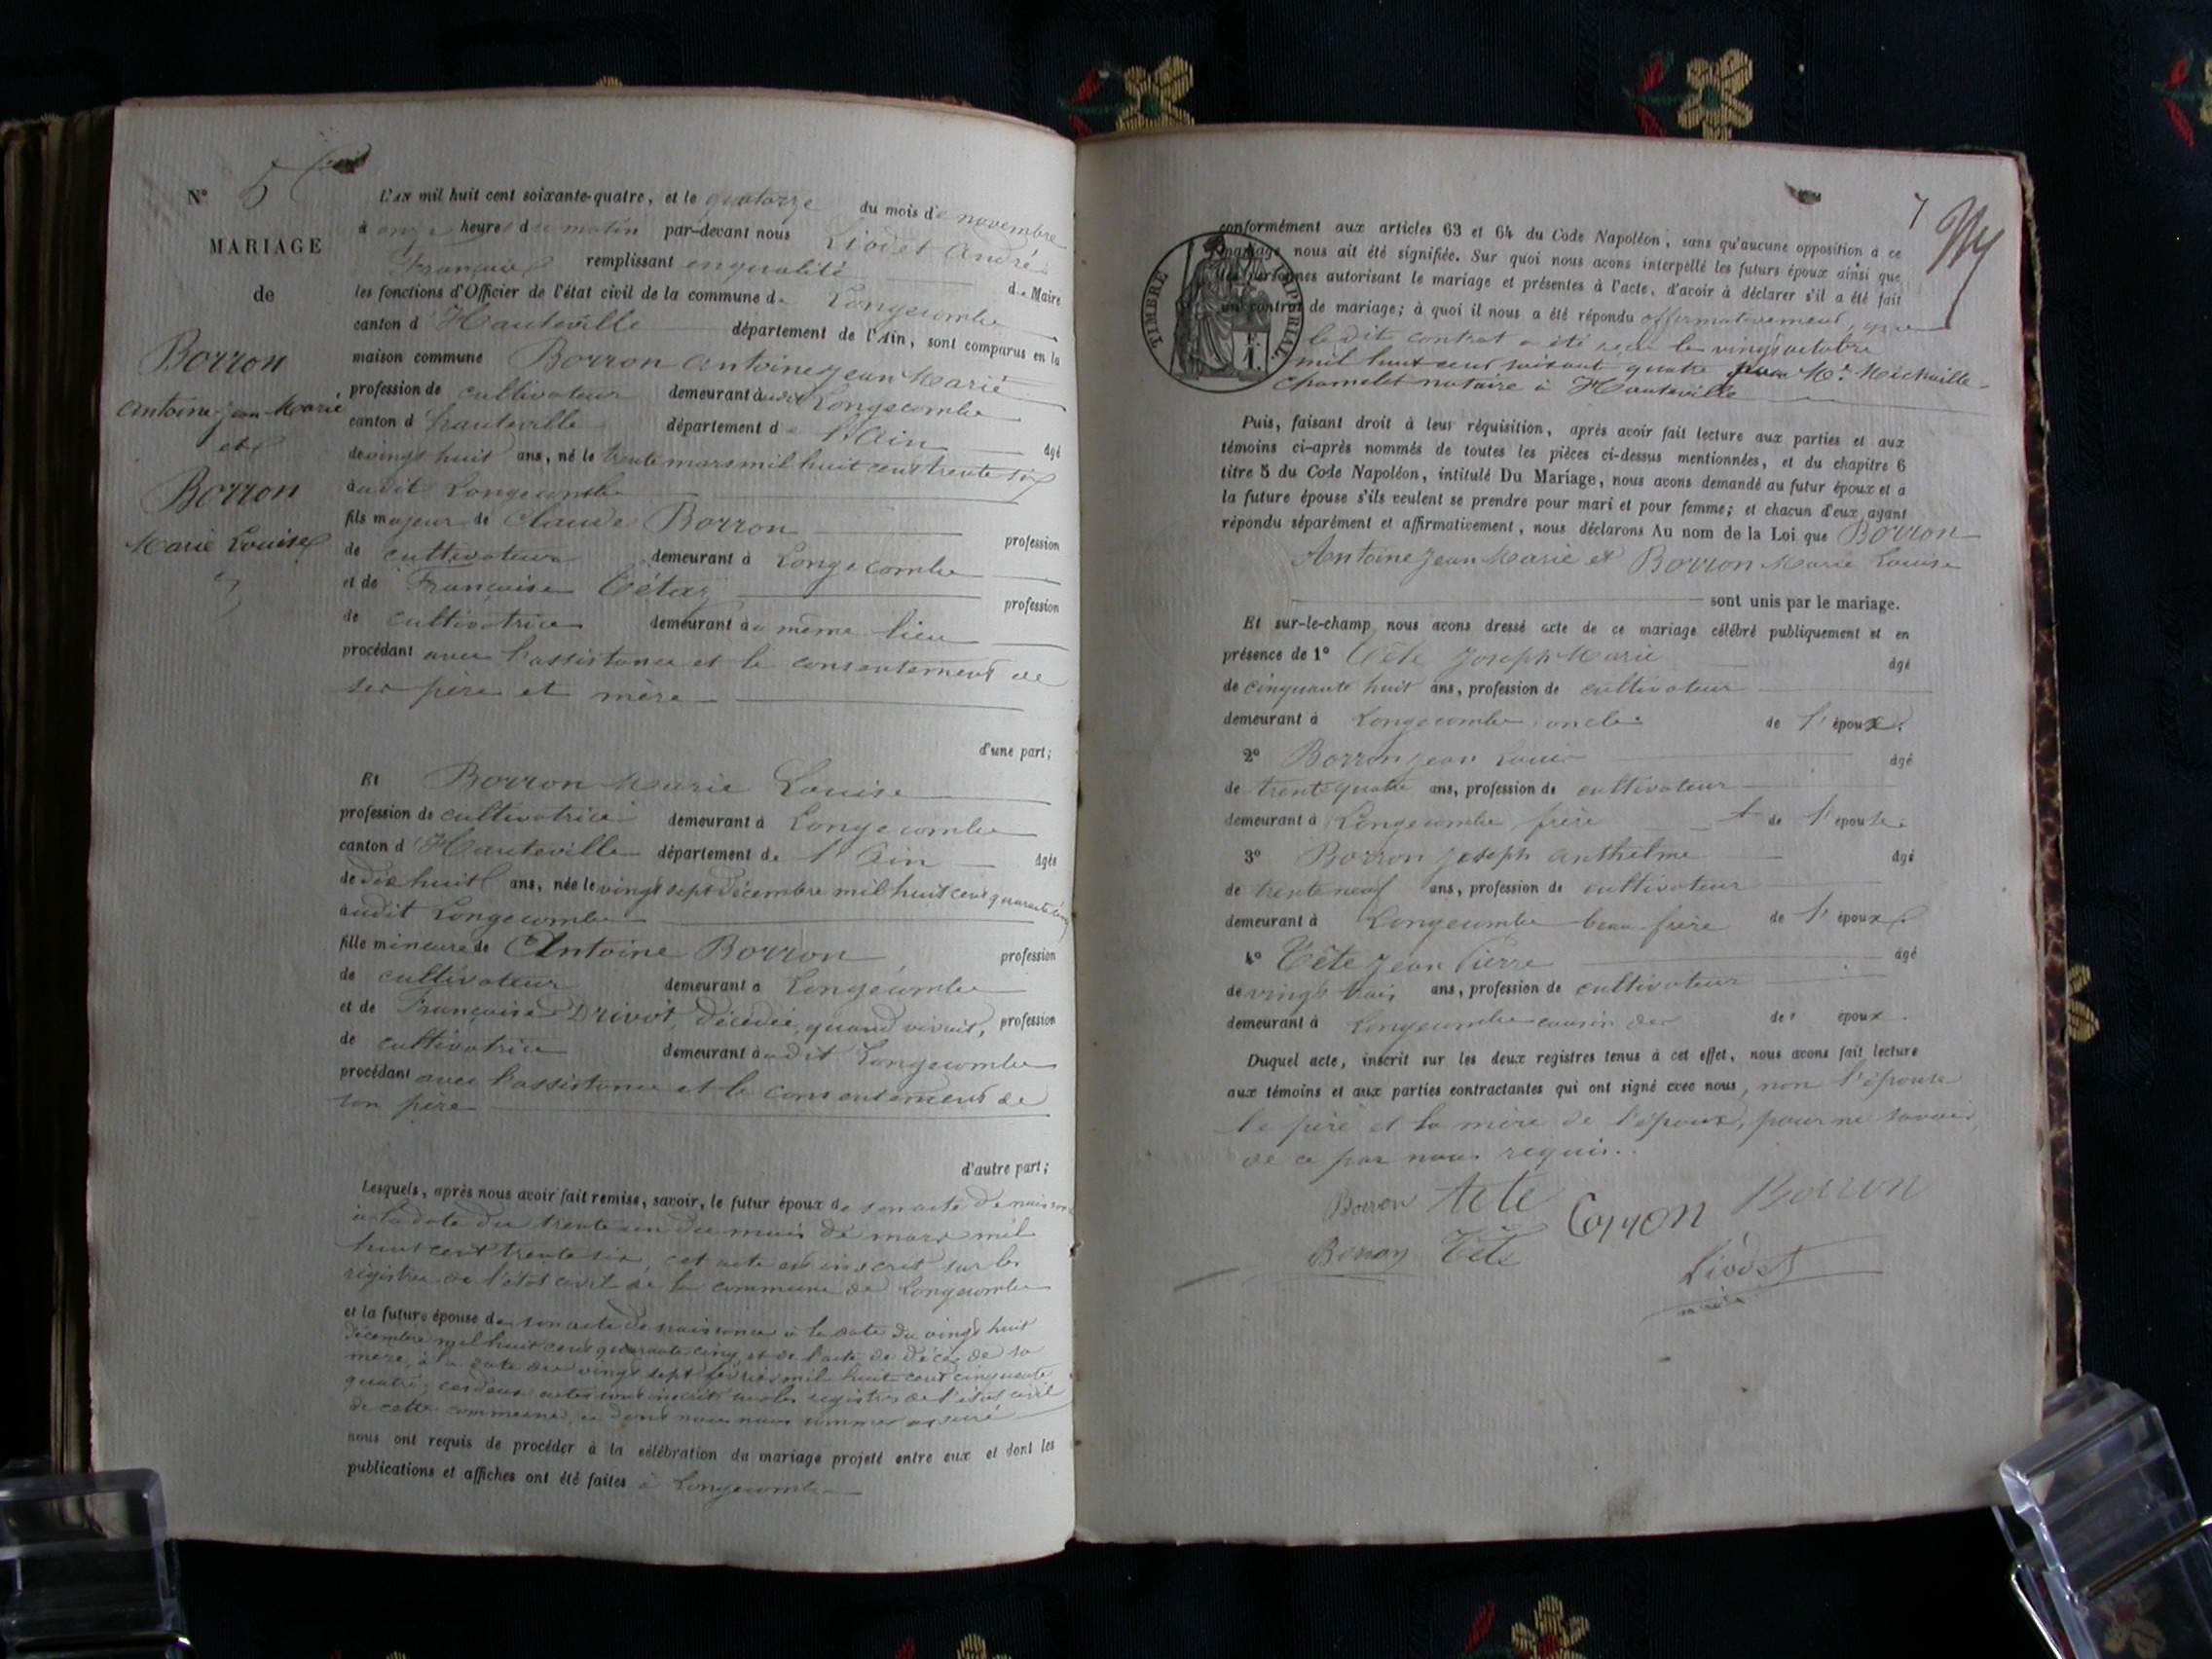 N° 5
MARIAGE
de
Borron
Antoine Jean Marie
et
Borron
Marie Louise
L'AN mil huit cent soixante-quatre, et le quatorze du mois de novembre
à onze heures du matin par-devant nous Liodet André
François remplissant en qualité de Maire
les fonctions d'Officier de l'état civil de la commune de Longecombe
canton d'Hauteville département de l'Ain, sont comparus en la
maison commune Borron Antoine Jean Marie
profession de cultivateur demeurant audit Longecombe
canton d'hauteville département de l'Ain âgé
de vingt huit ans, né le trente mars mil huit cent trente six
audit Longecombe
fils majeur de Claude Borron profession
de cultivateur demeurant à Longecombe
et de Françoise Tétaz profession
de cultivatrice demeurant au même lieu
procédant avec l'assistance et le consentement de
ses père et mère
d'une part;
Et Borron Marie Louise
profession de cultivatrice demeurant à Longecombe
canton d'Hauteville département de l'Ain âgée
de dix huit ans, née le vingt sept décembre mil huit cent quarante cinq
audit Longecombe
fille mineure de Antoine Borron profession
de cultivateur demeurant à Longecombe
et de Françoise Drivot, décédée, quand vivait, profession
de cultivatrice demeurant audit Longecombe
procédant avec l'assistance et le consentement de
son père
d'autre part;
Lesquels, après nous avoir fait remise, savoir, le futur époux de son acte de naissance
à la date du trente un du mois de mars mil
huit cent trente six, cet acte est inscrit sur les
registres de l'état civil de la commune de Longecombe
et la future épouse de son acte de naissance à la date du vingt huit
décembre mil huit cent quarante cinq et de l'acte de décès de sa
mère, à la date du vingt sept février mil huit cent cinquante
quatre; ces deux actes sont inscrits sur les registres de l'état civil
de cette commune, et dont nous nous sommes assuré
nous ont requis de procéder à la célébration du mariage projeté entre eux et dont les
publications et affiches ont été faites à Longecombe
7
TIMBRE IMPÉRIAL
conformément aux articles 63 et 64 du Code Napoléon, sans qu'aucune opposition à ce
mariage nous ait été signifiée. Sur quoi nous avons interpellé les futurs époux ainsi que
les personnes autorisant le mariage et présentes à l'acte, d'avoir à déclarer s'il a été fait
un contrat de mariage; à quoi il nous a été répondu affirmativement, que
ledit contrat a été reçu le vingt octobre
mil huit cent soixante quatre par Me Michaille
Chamelet notaire à Hauteville
Puis, faisant droit à leur réquisition, après avoir fait lecture aux parties et aux
témoins ci-après nommés de toutes les pièces ci-dessus mentionnées, et du chapitre 6
titre 5 du Code Napoléon, intitulé Du Mariage, nous avons demandé au futur époux et à
la future épouse s'ils veulent se prendre pour mari et pour femme; et chacun d'eux ayant
répondu séparément et affirmativement, nous déclarons Au nom de la Loi que Borron
Antoine Jean Marie et Borron Marie Louise
sont unis par le mariage.
Et sur-le-champ nous avons dressé acte de ce mariage célébré publiquement et en
présence de 1° Tête Joseph Marie âgé
de cinquante huit ans, profession de cultivateur
demeurant à Longecombe oncle de l'époux.
2° Borron Jean Louis âgé
de trente quatre ans, profession de cultivateur
demeurant à Longecombe frère de l'épouse.
3° Borron Joseph Anthelme âgé
de trente neuf ans, profession de cultivateur
demeurant à Longecombe beau frère de l'époux
4° Tête Jean Pierre âgé
de vingt trois ans, profession de cultivateur
demeurant à Longecombe cousin des époux.
Duquel acte, inscrit sur les deux registres tenus à cet effet, nous avons fait lecture
aux témoins et aux parties contractantes qui ont signé avec nous, non l'épouse
le père et la mère de l'époux, pour ne savoir,
de ce par nous requis.
Borron Tete Borron Borron
Borron Tête
Liodet